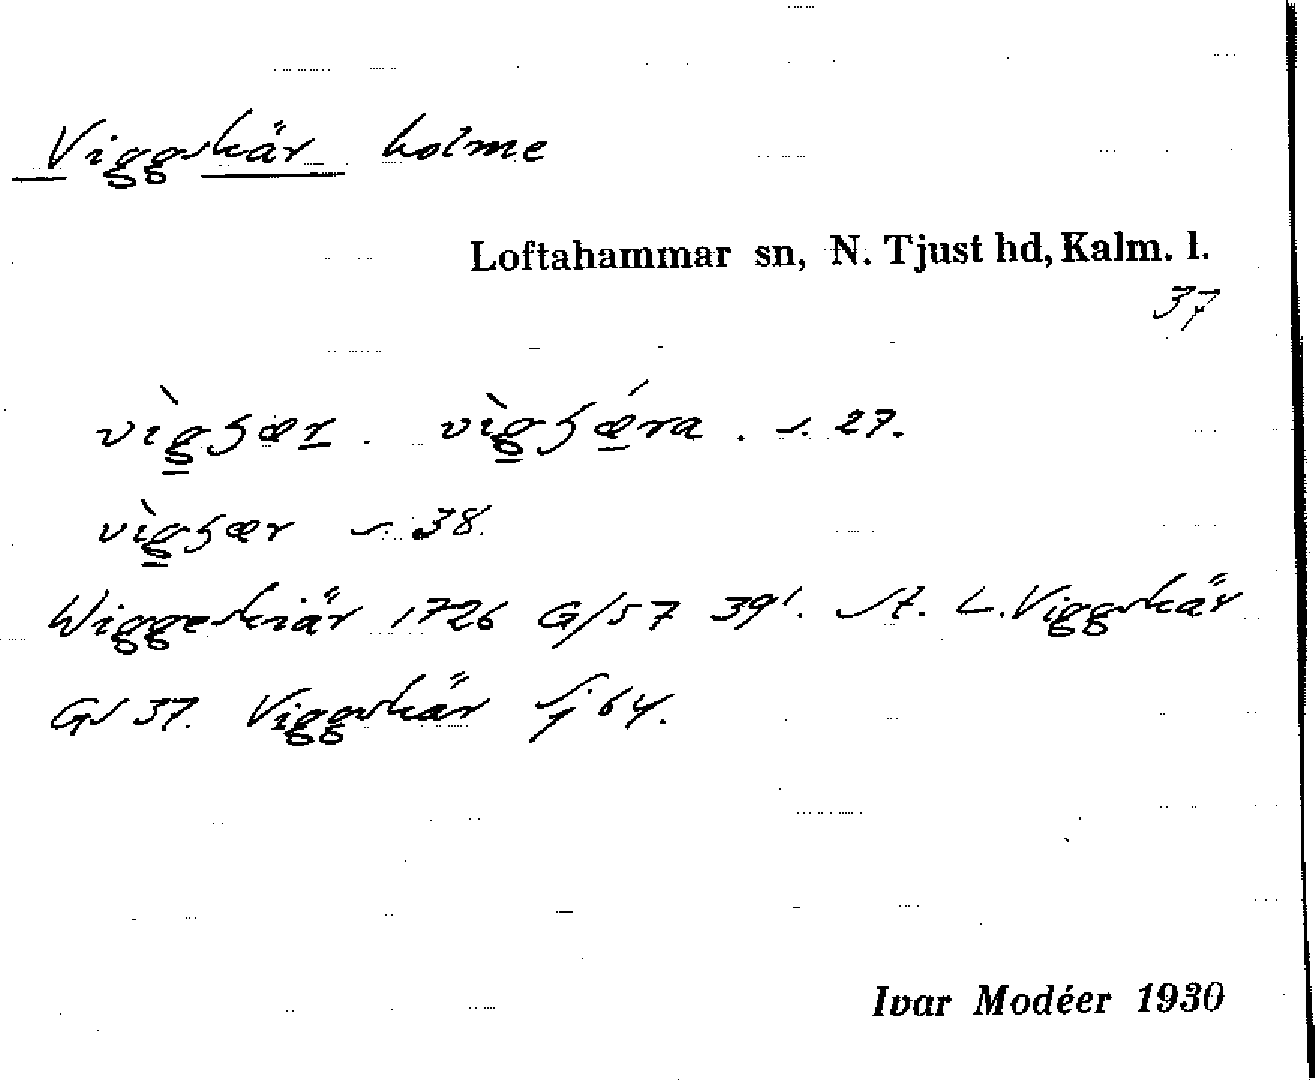 Viggskär holme
Loftahammar sn, N. Tjust hd, Kalm. l.
37
vìgʂær. vìgʂǽra. s. 27.
vìgʂær s. 38.
Wiggeskiär 1726 G/57 39'. St. L. Viggskär
GS 37. Viggskär Sj 64.
Ivar Modéer 1930